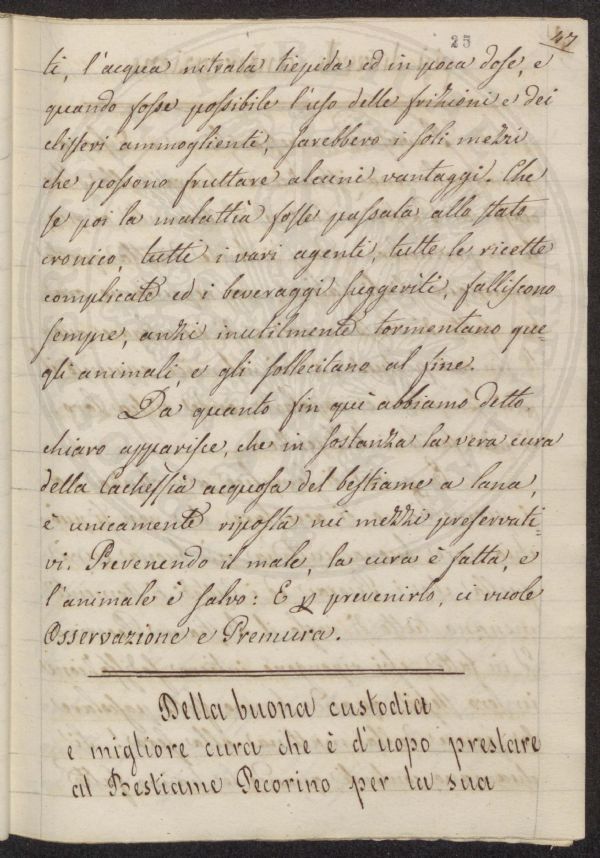 25
47
ti, l'acqua nitrata tiepida ed in poca dose, e
quando fosse possibile l'uso delle frizioni e dei
clisteri ammoglienti, sarebbero i soli mezzi
che possono fruttare alcuni vantaggi. Che
se poi la malattia fosse passata allo stato
cronico, tutti i vari agenti, tutte le ricette
complicate ed i beveraggi suggeriti, falliscono
sempre, anzi inutilmente tormentano que=
gli animali, e gli sollecitano al fine.
Da quanto fin quì abbiamo detto,
chiaro apparisce, che in sostanza la vera cura
della Cachessia acquosa del bestiame a lana,
è unicamente riposta nei mezzi preservati=
vi. Prevenendo il male, la cura è fatta, e
l'animale è salvo: E p prevenirlo, ci vuole
Osservazione e Premura.
Della buona custodia
e migliore cura che è d'uopo prestare
al Bestiame Pecorino per la sua